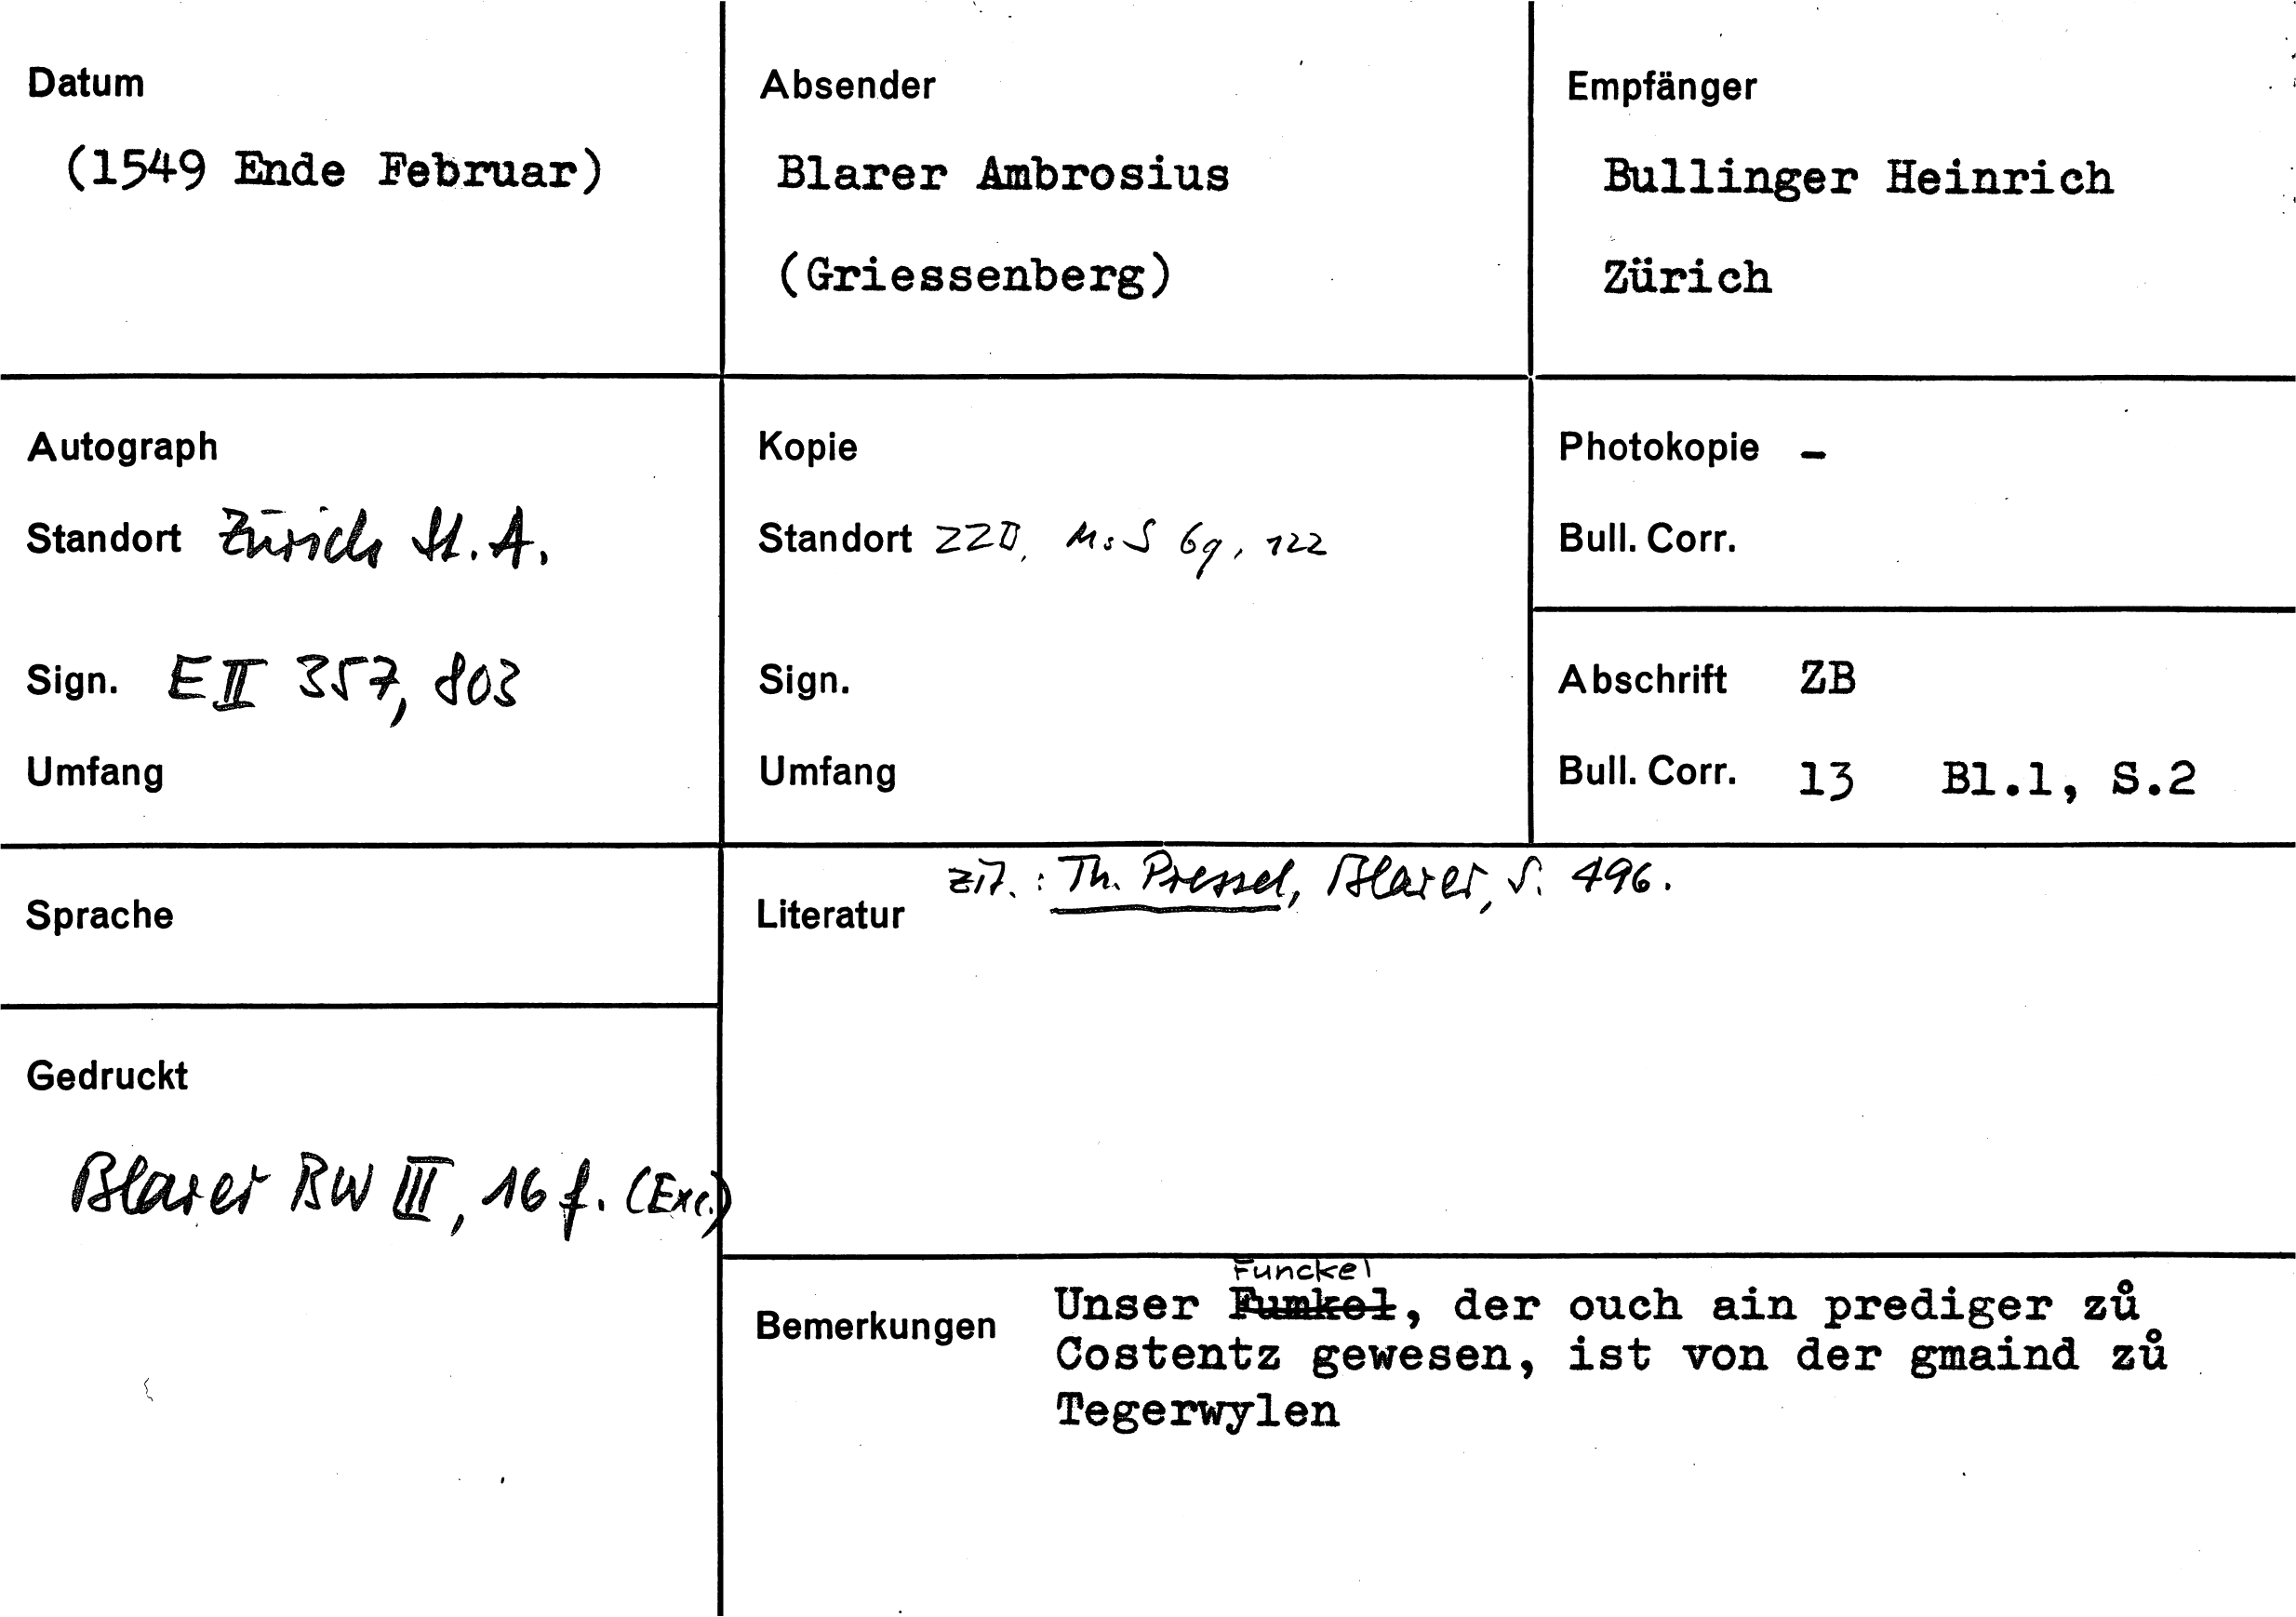 Datum
(1549 Ende Februar)
Absender
Blarer Ambrosius
(Griessenberg)
Empfänger
Bullinger Heinrich
Zürich
Autograph
Standort Zürich St. A.
Sign. E II 357, 803
Umfang
Kopie
Standort ZZB, Ms S 69, 122
Sign.
Umfang
Photokopie -
Bull. Corr.
Abschrift ZB
Bull. Corr. 13 Bl.1, S.2
Sprache
Gedruckt
Blarer BW III, 16 f. (Exc.)
Literatur zit.: Th. Pressel, Blarer, S. 496.
Funckel
Bemerkungen Unser Funkel, der ouch ain prediger zů
Costentz gewesen, ist von der gmaind zů
Tegerwylen